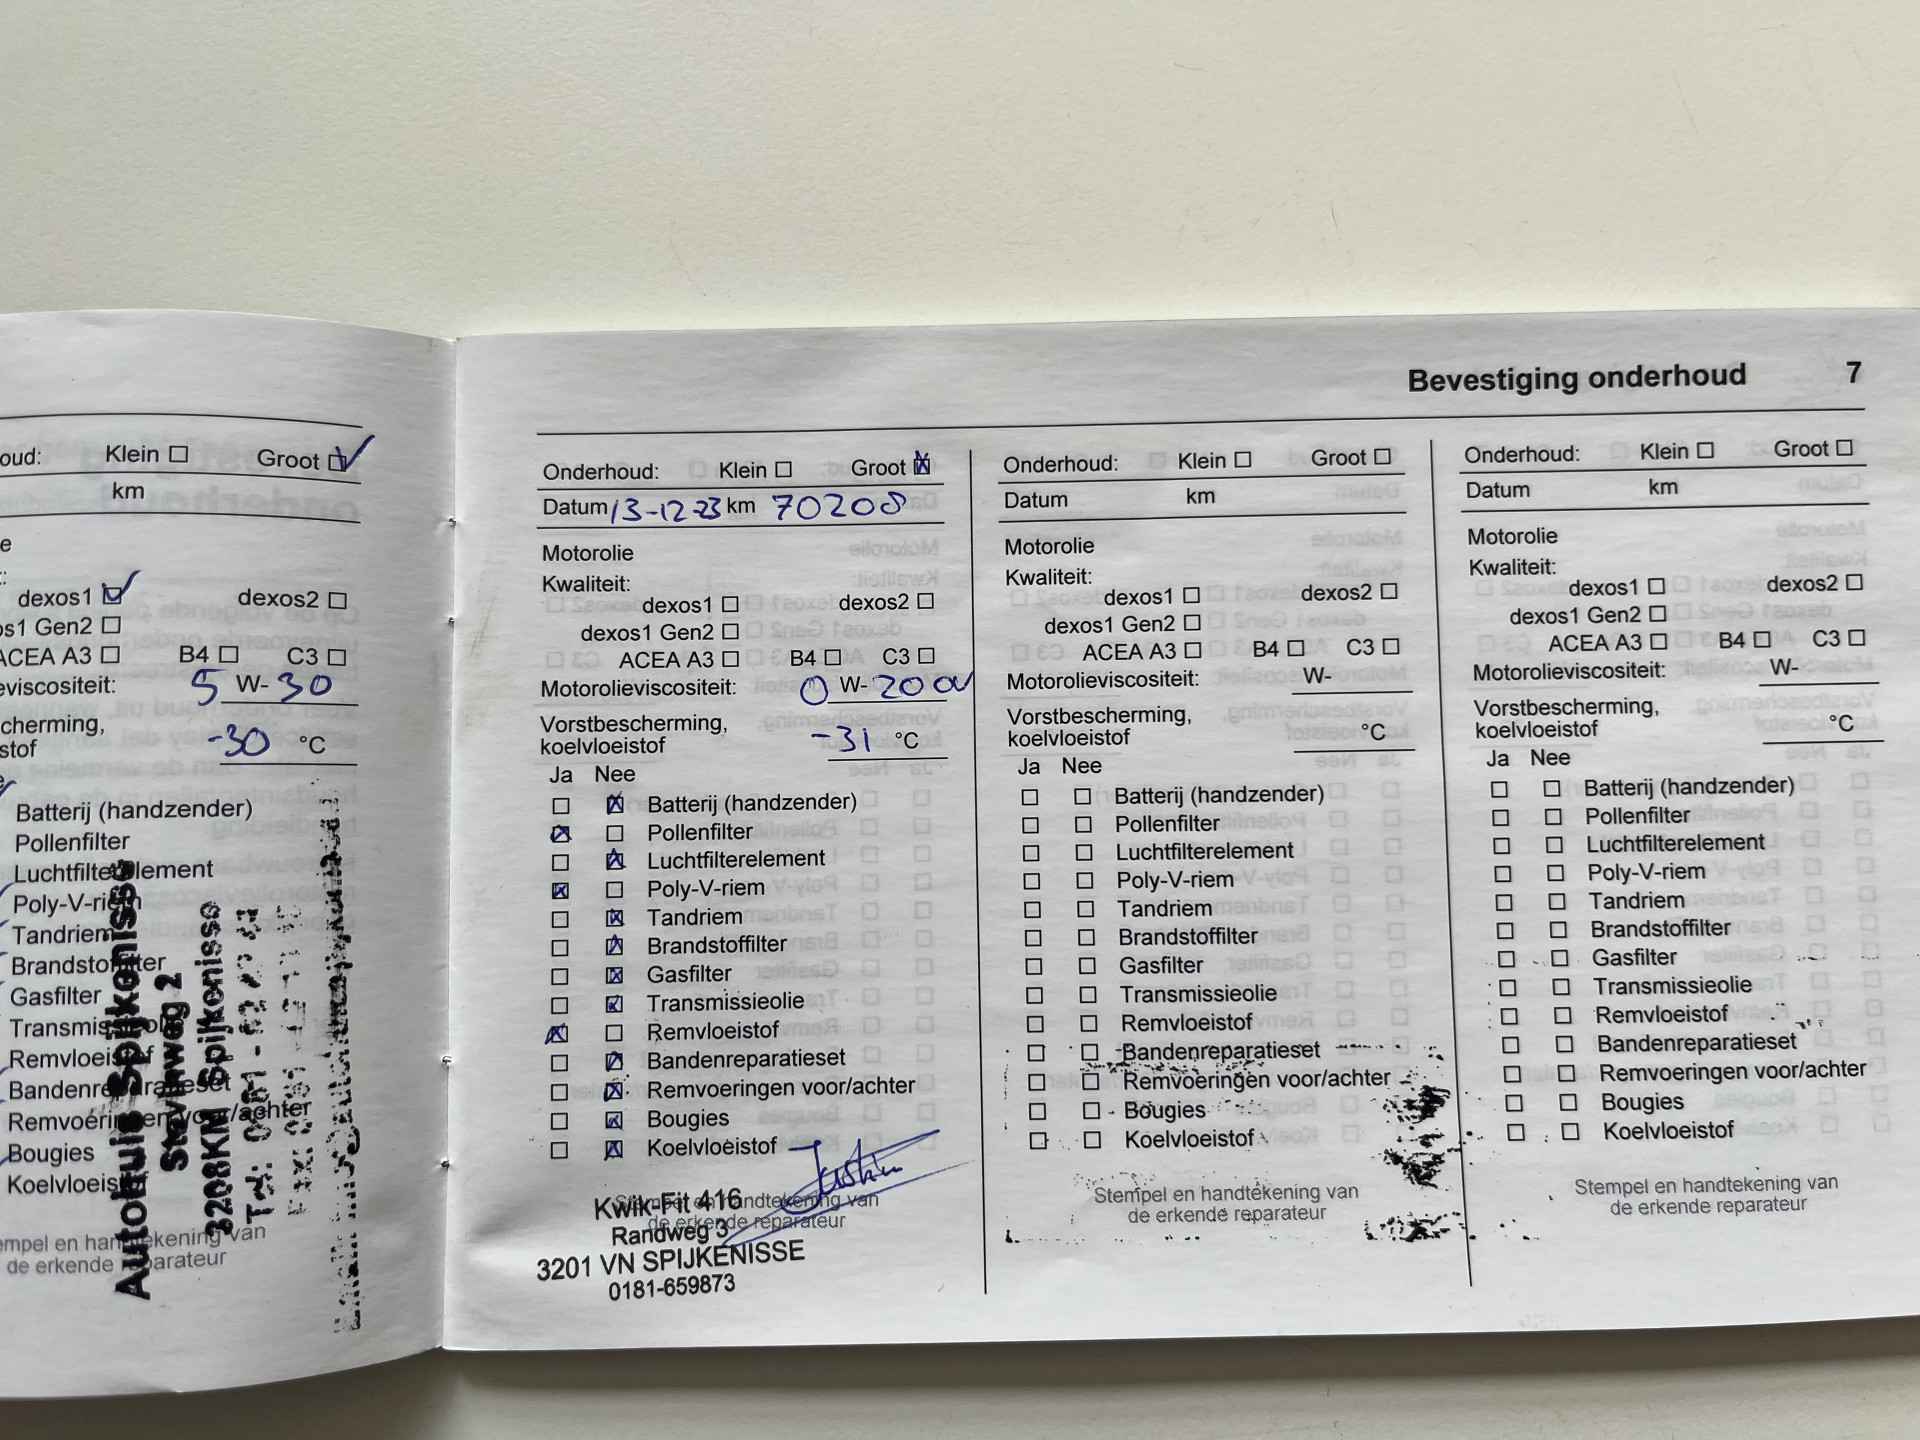 Bevestiging onderhoud 7
oud: Klein Groot
km
e
:
dexos1 dexos2
os1 Gen2
ACEA A3 B4 C3
eviscositeit: 5 W- 30
cherming,
stof -30 °C
Batterij (handzender)
Pollenfilter
Luchtfilterelement
Poly-V-riem
Tandriem
Brandstoffilter
Gasfilter
Transmissieolie
Remvloeistof
Bandenreparatieset
Remvoeringen voor/achter
Bougies
Koelvloeistof
empel en handtekening van
de erkende reparateur
Autohuis Spijkenisse
Stevinweg 2
3208KN Spijkenisse
Onderhoud: Klein Groot
Datum 13-12-23 km 70208
Motorolie
Kwaliteit:
dexos1 dexos2
dexos1 Gen2
ACEA A3 B4 C3
Motorolieviscositeit: 0 W- 20
Vorstbescherming,
koelvloeistof -31 °C
Ja Nee
Batterij (handzender)
Pollenfilter
Luchtfilterelement
Poly-V-riem
Tandriem
Brandstoffilter
Gasfilter
Transmissieolie
Remvloeistof
Bandenreparatieset
Remvoeringen voor/achter
Bougies
Koelvloeistof
Stempel en handtekening van
de erkende reparateur
Kwik-Fit 416
Randweg 3
3201 VN SPIJKENISSE
0181-659873
Onderhoud: Klein Groot
Datum km
Motorolie
Kwaliteit:
dexos1 dexos2
dexos1 Gen2
ACEA A3 B4 C3
Motorolieviscositeit: W-
Vorstbescherming,
koelvloeistof °C
Ja Nee
Batterij (handzender)
Pollenfilter
Luchtfilterelement
Poly-V-riem
Tandriem
Brandstoffilter
Gasfilter
Transmissieolie
Remvloeistof
Bandenreparatieset
Remvoeringen voor/achter
Bougies
Koelvloeistof
Stempel en handtekening van
de erkende reparateur
Onderhoud: Klein Groot
Datum km
Motorolie
Kwaliteit:
dexos1 dexos2
dexos1 Gen2
ACEA A3 B4 C3
Motorolieviscositeit: W-
Vorstbescherming,
koelvloeistof °C
Ja Nee
Batterij (handzender)
Pollenfilter
Luchtfilterelement
Poly-V-riem
Tandriem
Brandstoffilter
Gasfilter
Transmissieolie
Remvloeistof
Bandenreparatieset
Remvoeringen voor/achter
Bougies
Koelvloeistof
Stempel en handtekening van
de erkende reparateur